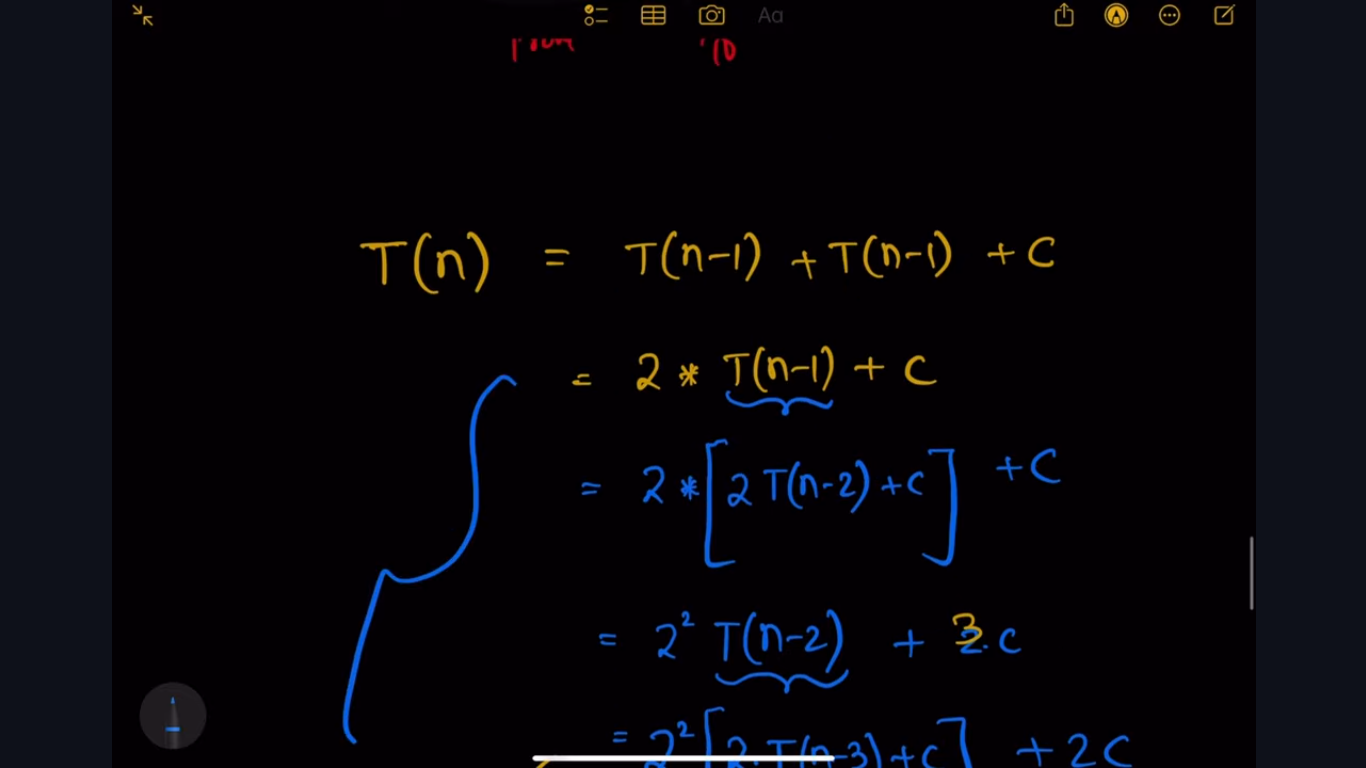 Aa
T(n) = T(n-1) + T(n-1) + C
= 2 * T(n-1) + C
= 2 * [2 T(n-2) + C] + C
= 2² T(n-2) + 3.C
= 2² [2. T(n-3) + C] + 2C